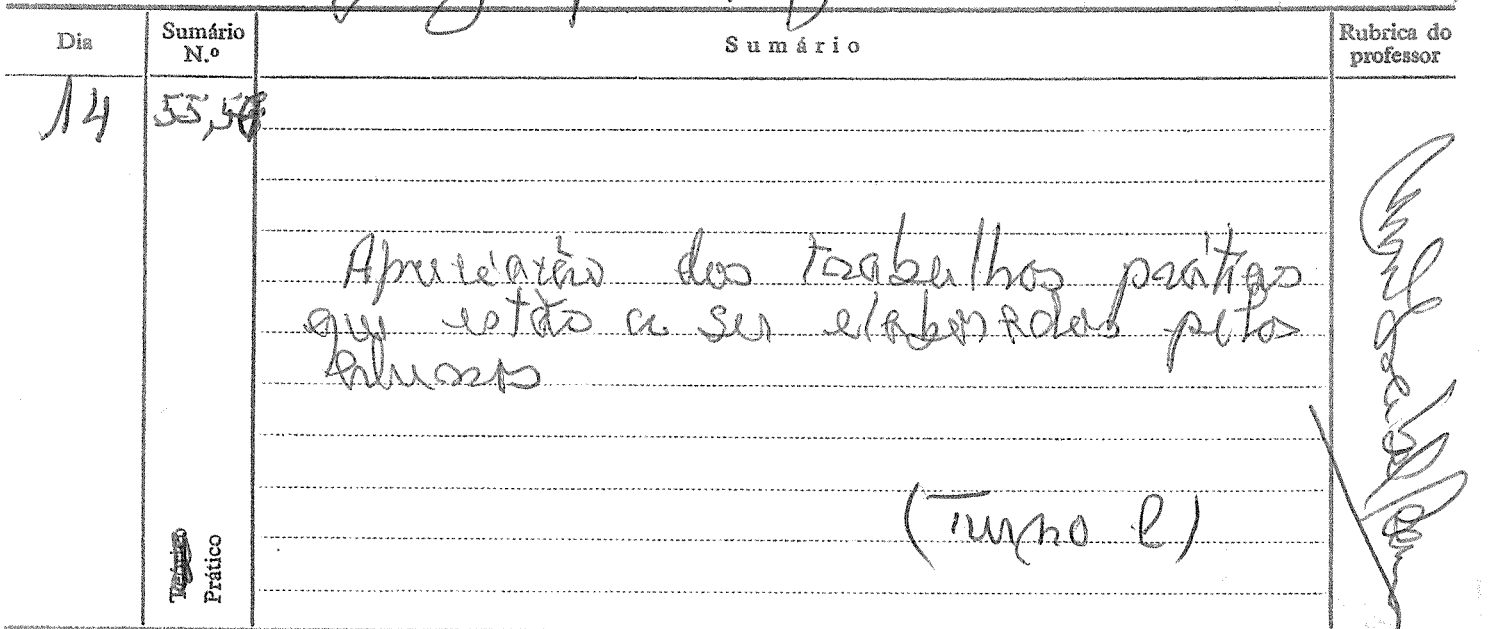 Dia
Sumário N.º
Sumário
Rubrica do professor
14
55,56
Apreciação dos trabalhos práticos
que estão a ser elaborados pelos
alunos
(Turno
Prático